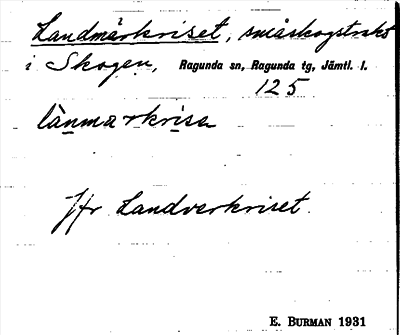 Landmärkriset, småskogstrakt
i Skogen, Ragunda sn, Ragunda tg, Jämtl. l.
125
lànmarkrisa
Jfr Landverkriset.
E. BURMAN 1931